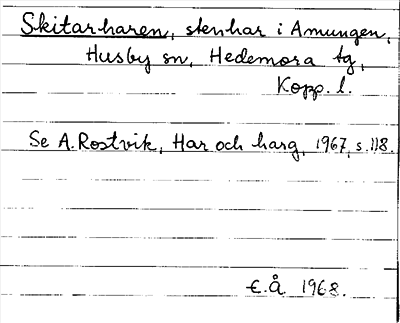 Skitarharen, stenhar i Amungen,
Husby sn, Hedemora tg,
Kopp. l.
Se A. Rostvik, Har och harg, 1967, s. 118.
E.Å. 1968.